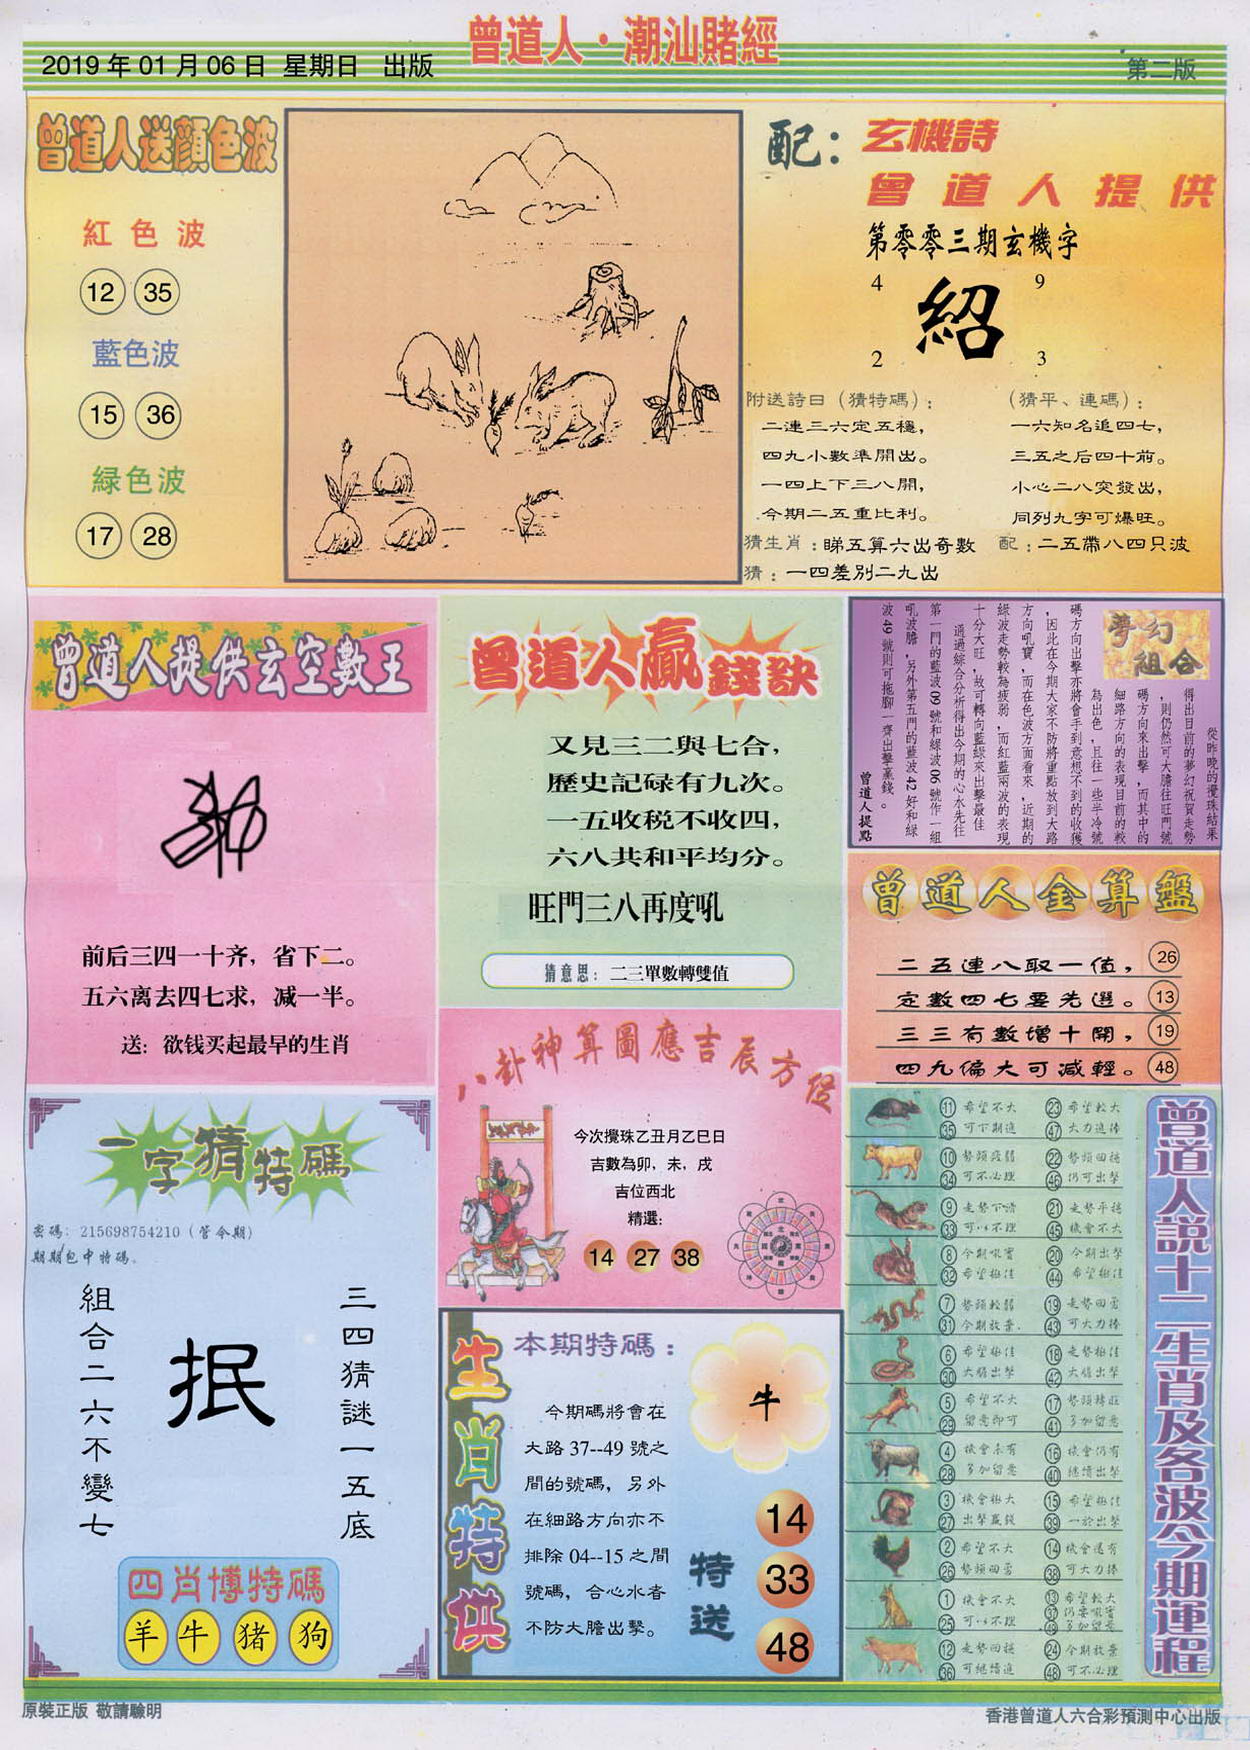 曾道人·潮汕賭經
2019年01月06日 星期日 出版
第二版
曾道人送顏色波
紅色波
12 35
藍色波
15 36
緑色波
17 28
配：玄機詩
曾道人提供
第零零三期玄機字
4 9
紹
2 3
附送詩曰（猜特碼）：
二連三六定五穩，
四九小數準開出。
一四上下三八開，
今期二五重比利。
（猜平、連碼）：
一六知名追四七，
三五之后四十前。
小心二八突發出，
同列九字可爆旺。
猜生肖：睇五算六出奇數
配：二五帶八四只波
猜：一四差別二九出
曾道人提供玄空數王
前后三四一十齐，省下二。
五六离去四七求，减一半。
送：欲钱买起最早的生肖
曾道人贏錢訣
又見三二與七合，
歷史記碌有九次。
一五收税不收四，
六八共和平均分。
旺門三八再度吼
猜意思：二三單數轉雙值
夢幻
組合
從昨晚的攪珠結果
得出目前的夢幻祝賀走勢
，則仍然可大膽往旺門號
碼方向來出擊，而其中的
細路方向的表現目前的較
為出色，且往一些半冷號
碼方向出擊亦將會手到意想不到的收獲
，因此在今期大家不防將重點放到大路
方向吼寶，而在色波方面看來，近期的
綠波走勢較為疲弱，而紅藍兩波的表現
十分大旺，故可轉向藍綠來出擊最佳
通過綜合分析得出今期的心水先往
第一門的藍波09號和綠波06號作一組
吼波膽，另外第五門的藍波42好和綠
波49號則可拖腳一齊出擊贏錢。
曾道人提點
曾道人金算盤
二五連八取一值， 26
定數四七要先選。 13
三三有數增十開， 19
四九偏大可減輕。 48
一字猜特碼
密碼：215698754210（管令期）
期期包中特碼。
組合二六不變七
抿
三四猜謎一五底
四肖博特碼
羊 牛 猪 狗
八卦神算圖應吉辰方位
今次攪珠乙丑月乙巳日
吉數為卯，未，戌
吉位西北
精選：
14 27 38
生肖特供
本期特碼：
牛
今期碼將會在
大路37--49號之
間的號碼，另外
在細路方向亦不
排除04--15之間
號碼，合心水者
不防大膽出擊。
特送
14
33
48
曾道人説十二生肖及各波今期運程
11 希望不大 23 希望較大
35 可下期進 47 大力追捧
10 勢頭疲弱 22 勢頭回穩
34 可不必理 46 仍可出擊
9 走勢下滑 21 走勢平穩
33 可以不理 45 機會不大
8 今期吼寶 20 今期出擊
32 希望極佳 44 希望極佳
7 勢頭較弱 19 走勢回勇
31 今期放棄. 43 可大力捧
6 希望極佳 18 走勢極佳
30 大膽出擊 42 大膽出擊
5 希望不大 17 勢頭轉旺
29 留意即可 41 多加留意
4 機會未有 16 機會仍有
28 多加留意 40 繼續出擊
3 機會極大 15 希望極佳
27 出擊贏錢 39 一於出擊
2 希望不大 14 機會還有
26 勢頭回勇 38 可大力捧
1 機會不大 13 希望較大
25 可以不理 37 仍要吼寶
49 多加留意
12 走勢回穩 24 今期放棄
36 可繼續追 48 可不必理
原裝正版 敬請驗明
香港曾道人六合彩預測中心出版